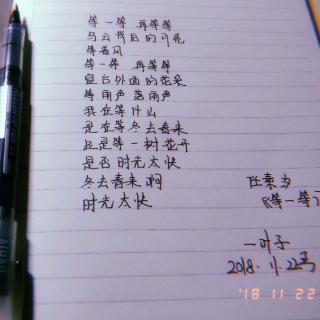 等一等 再等等
乌云背后的月光
等着风
等一等 再等等
窗台外面的花朵
等雨声 落雨声
我在等什么
是在等冬去春来
还是等一树花开
是否时光太快
冬去春来啊
任素汐
时光太快
《等一等》
一叶子
2018.11.22号
'18 11 22